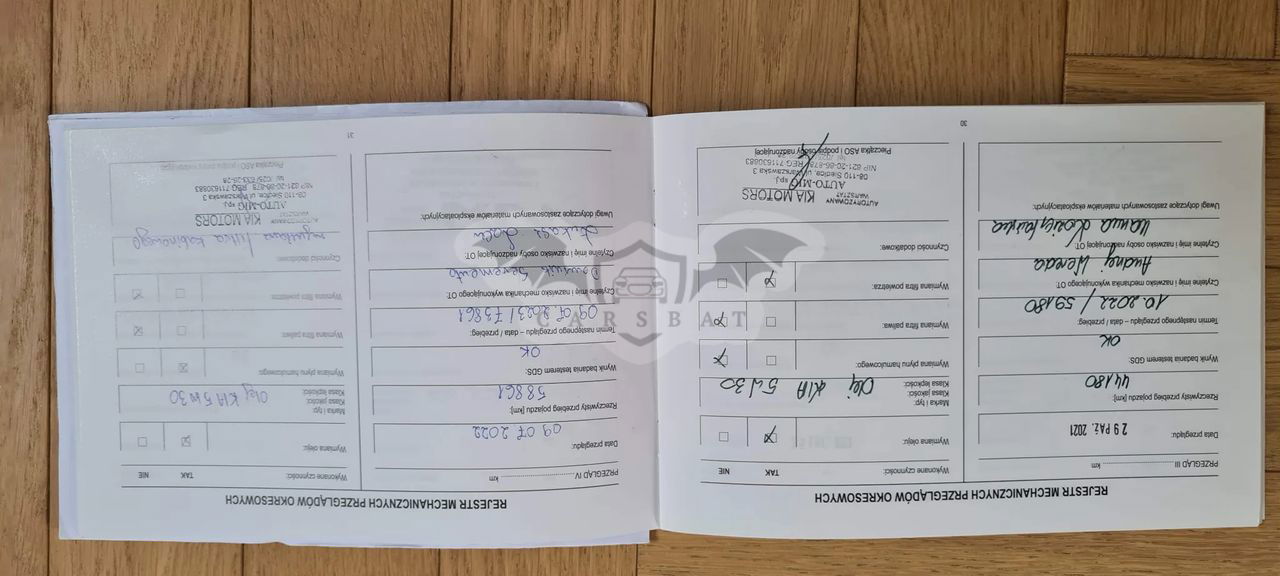 REJESTR MECHANICZNYCH PRZEGLĄDÓW OKRESOWYCH
PRZEGLĄD III ................ km
Data przeglądu: 29 PAŹ. 2021
Rzeczywisty przebieg pojazdu [km]: 44180
Wynik badania testerem GDS: OK
Termin następnego przeglądu – data / przebieg: 10.2022 / 59180
Czytelne imię i nazwisko mechanika wykonującego OT:
Czytelne imię i nazwisko osoby nadzorującej OT:
Uwagi dotyczące zastosowanych materiałów eksploatacyjnych:
Wykonane czynności: TAK NIE
Wymiana oleju:
Marka i typ:
Klasa jakości:
Klasa lepkości:
Olej KIA 5W30
Wymiana płynu hamulcowego:
Wymiana filtra paliwa:
Wymiana filtra powietrza:
Czynności dodatkowe:
AUTORYZOWANY
WARSZTAT KIA MOTORS
AUTO-MIG sp.j.
08-110 Siedlce, ul. Warszawska 3
NIP 821-20-86-878 REG 711630883
Pieczątka ASO i podpis osoby nadzorującej
30
REJESTR MECHANICZNYCH PRZEGLĄDÓW OKRESOWYCH
PRZEGLĄD IV ................ km
Data przeglądu: 09 07 2022
Rzeczywisty przebieg pojazdu [km]: 58861
Wynik badania testerem GDS: OK
Termin następnego przeglądu – data / przebieg: 09.07.2023 / 73861
Czytelne imię i nazwisko mechanika wykonującego OT:
Czytelne imię i nazwisko osoby nadzorującej OT: Łukasz
Uwagi dotyczące zastosowanych materiałów eksploatacyjnych:
Wykonane czynności: TAK NIE
Wymiana oleju:
Marka i typ:
Klasa jakości:
Klasa lepkości:
Olej KIA 5W30
Wymiana płynu hamulcowego:
Wymiana filtra paliwa:
Wymiana filtra powietrza:
Czynności dodatkowe: wymiana filtra kabinowego
AUTORYZOWANY
WARSZTAT KIA MOTORS
AUTO-MIG sp.j.
08-110 Siedlce, ul. Warszawska 3
NIP 821-20-86-878 REG 711630883
tel. 025/633-26-28
Pieczątka ASO i podpis osoby nadzorującej
31
CARSBAT